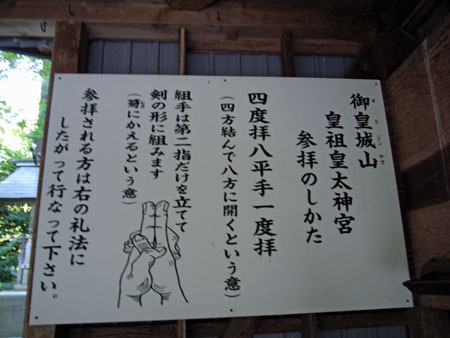 御皇城山
皇祖皇太神宮
参拝のしかた
四度拝八平手一度拝
(四方結んで八方に開くという意)
組手は第二指だけを立てて
剣の形に組みます
(におかえるという意)
参拝される方は右の礼法に
したがって行なって下さい。